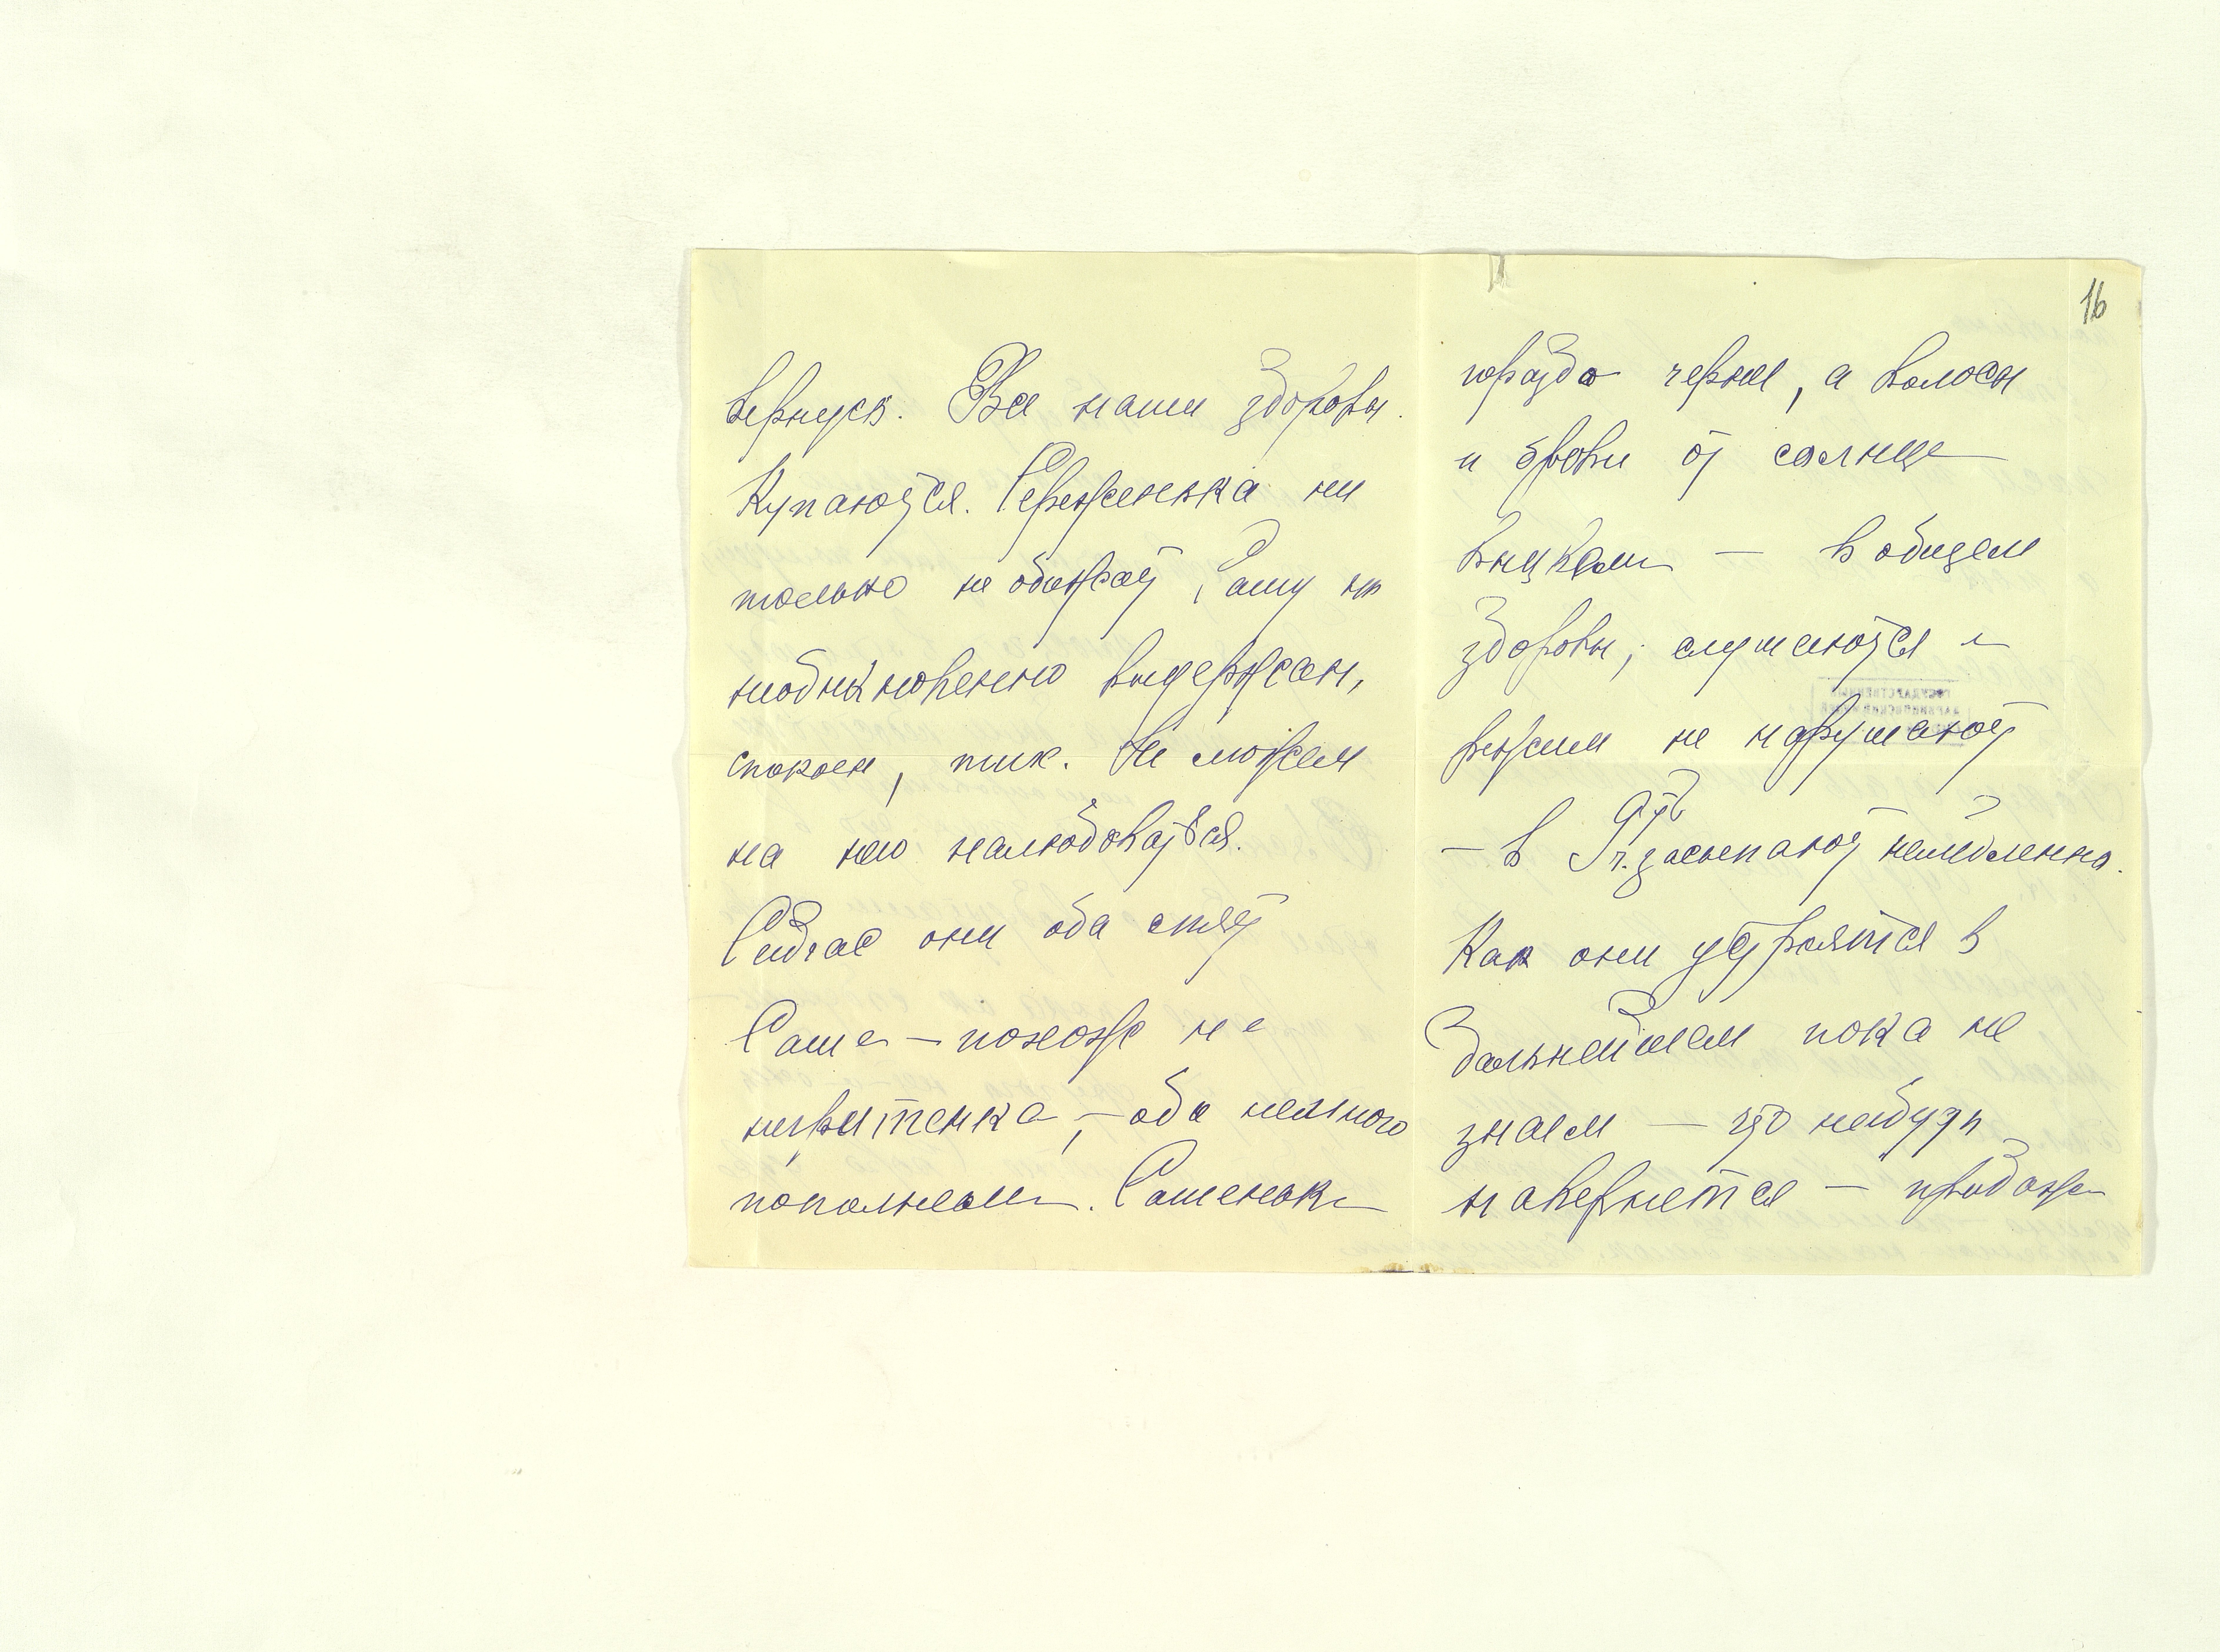 16
вернусь. Все наши здоровы.
Купаются. Сереженька ни
только не обижает Сашу но
необыкновенно выдержан,
спокоен, тих. Не можем
на него налюбоваться.
Сейчас они оба спят
Саше – похоже на
негритенка, – оба немного
пополнели. Сашенька
гораздо черней, а волосы
и брови от солнца
выцвели — в общем
здоровы; слушаются и
режим не нарушают
— в 9 ч. засыпают немедленно.
Как они устроятся в
дальнейшем пока не
знаем — что нибудь
навернется —